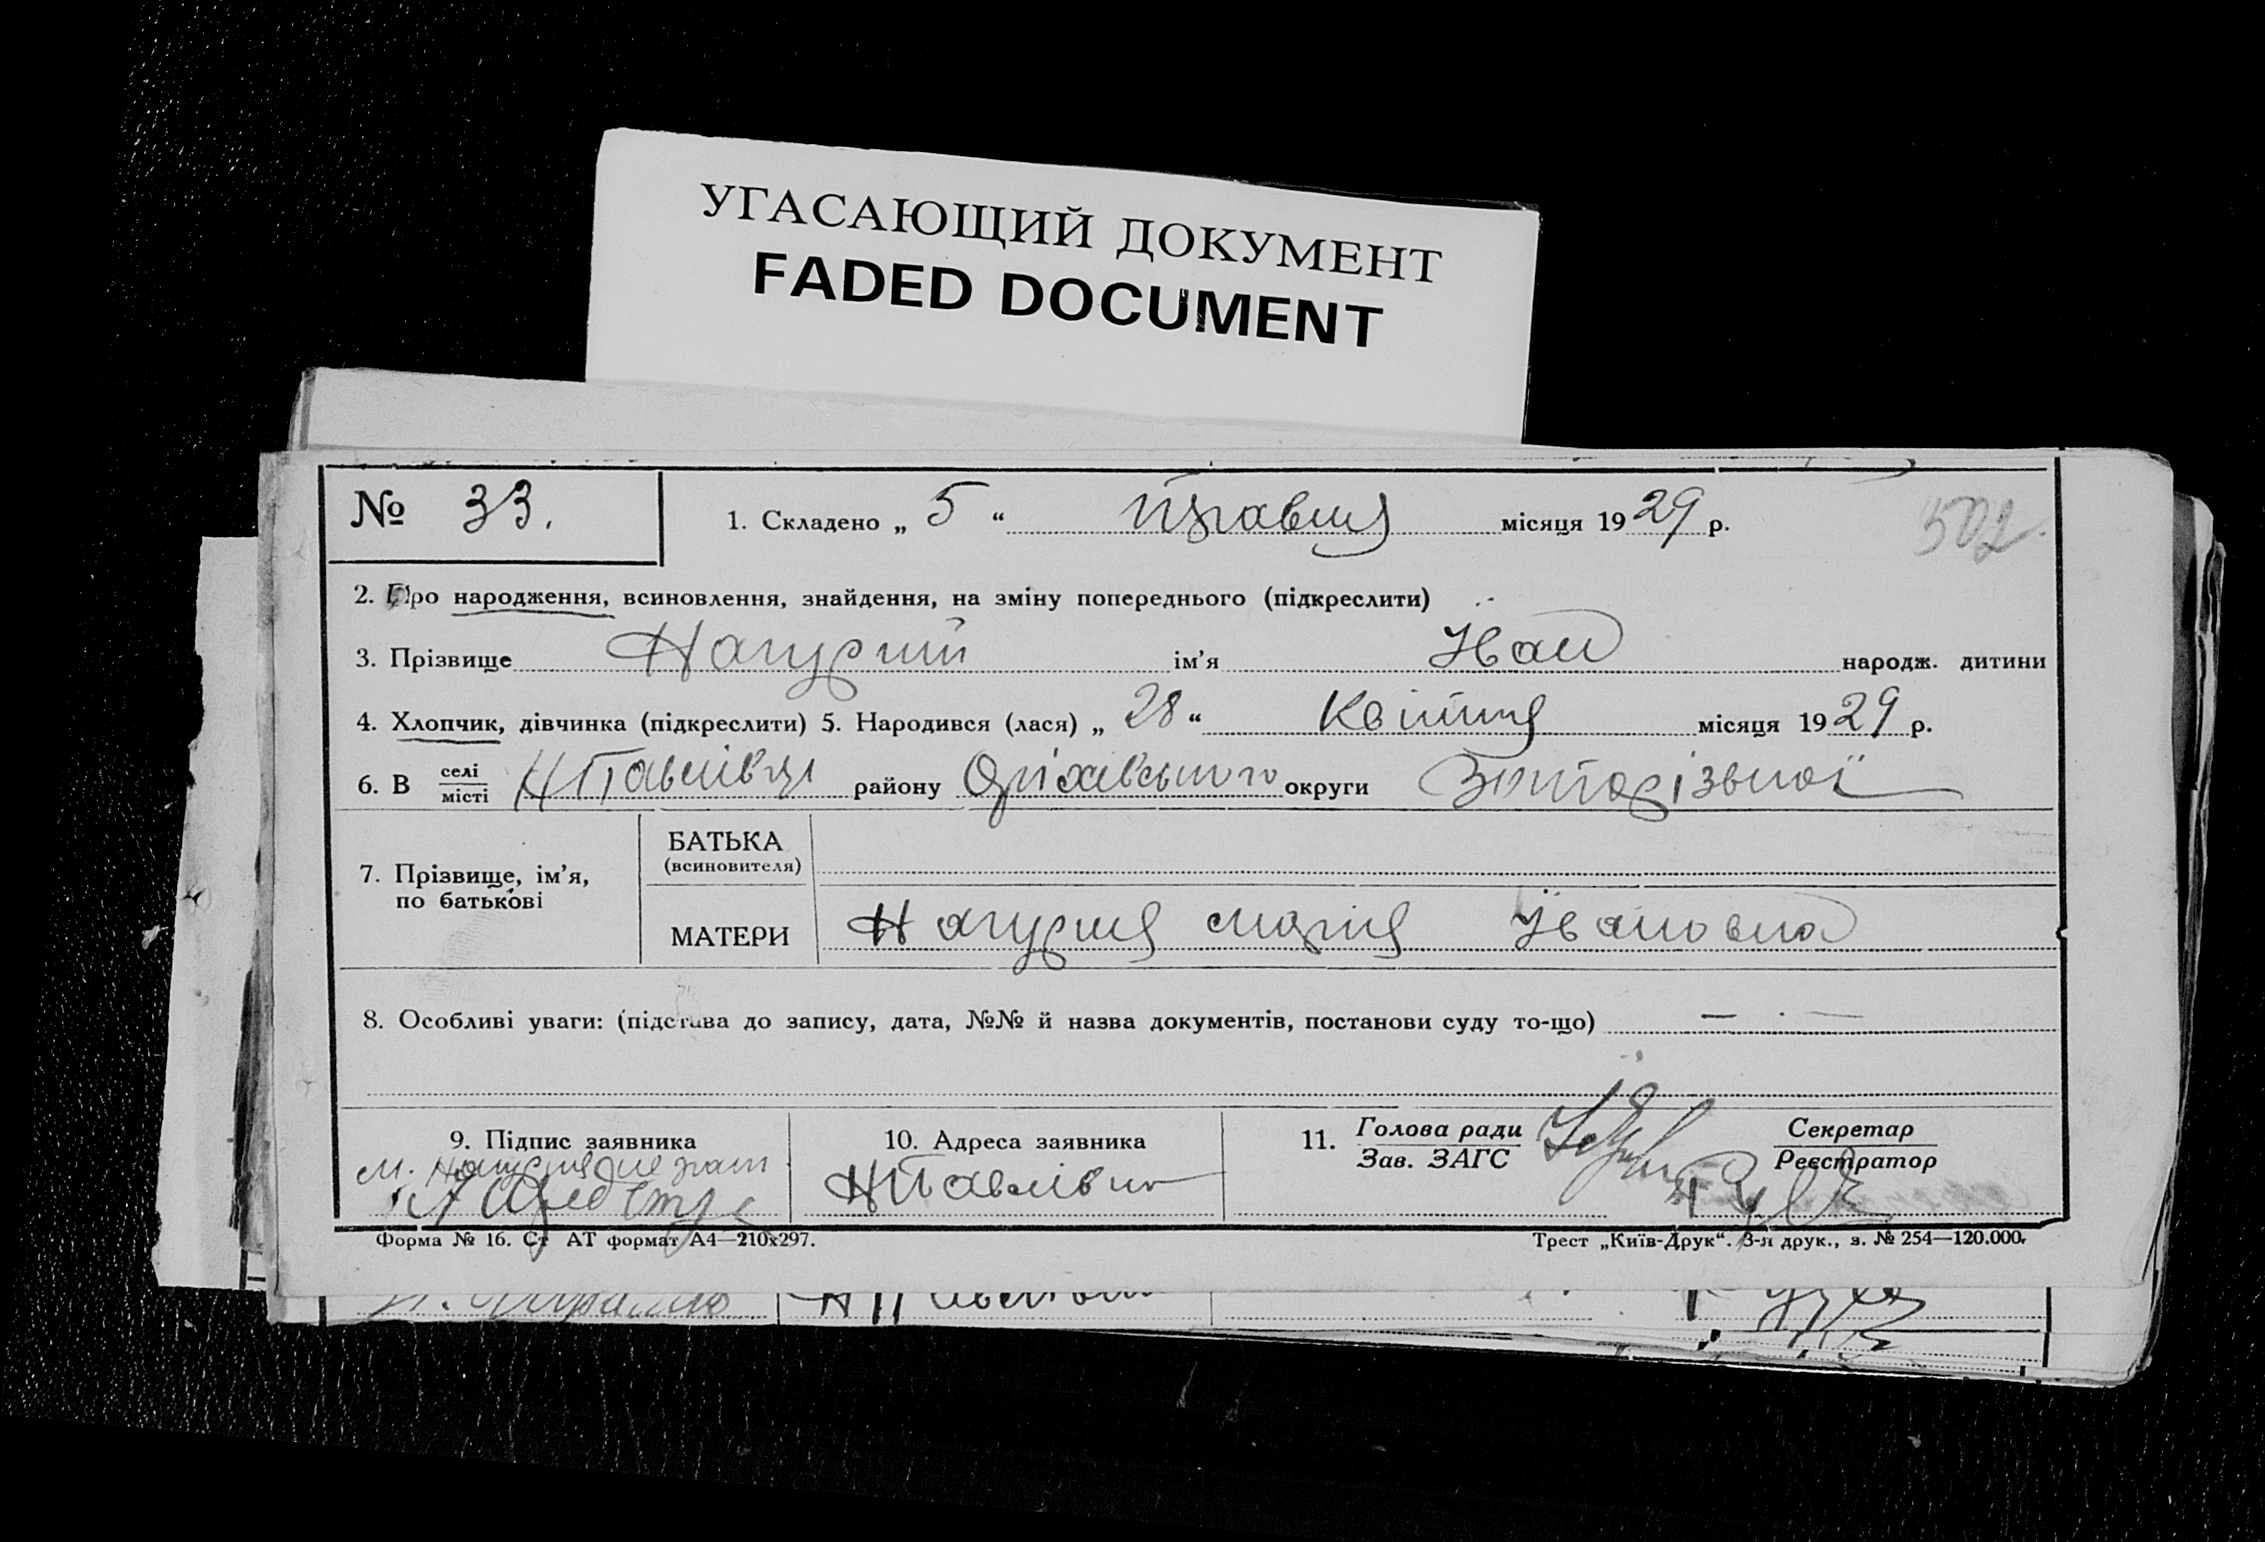 УГАСАЮЩИЙ ДОКУМЕНТ
FADED DOCUMENT
№ 33.
1. Складено „ 5 “ Травня місяця 1929 р.
502.
2. Про народження, всиновлення, знайдення, на зміну попереднього (підкреслити)
3. Прізвище Нагурний ім’я Іван народж. дитини
4. Хлопчик, дівчинка (підкреслити) 5. Народився (лася) „ 28 “ Квітня місяця 1929 р.
6. В селі місті Н Павлівці району Оріхівського округи Запорізької
7. Прізвище, ім’я, по батькові
БАТЬКА
(всиновителя)
МАТЕРИ Нагурня Марія Івановна
8. Особливі уваги: (підстава до запису, дата, №№ й назва документів, постанови суду то-що) — · —
9. Підпис заявника
10. Адреса заявника
Н Павлівка
11. Голова ради
Зав. ЗАГС
Секретар
Реєстратор
Форма № 16. Ст АТ формат А4—210х297.
Трест „Київ-Друк“. 3-я друк., з. № 254—120.000.